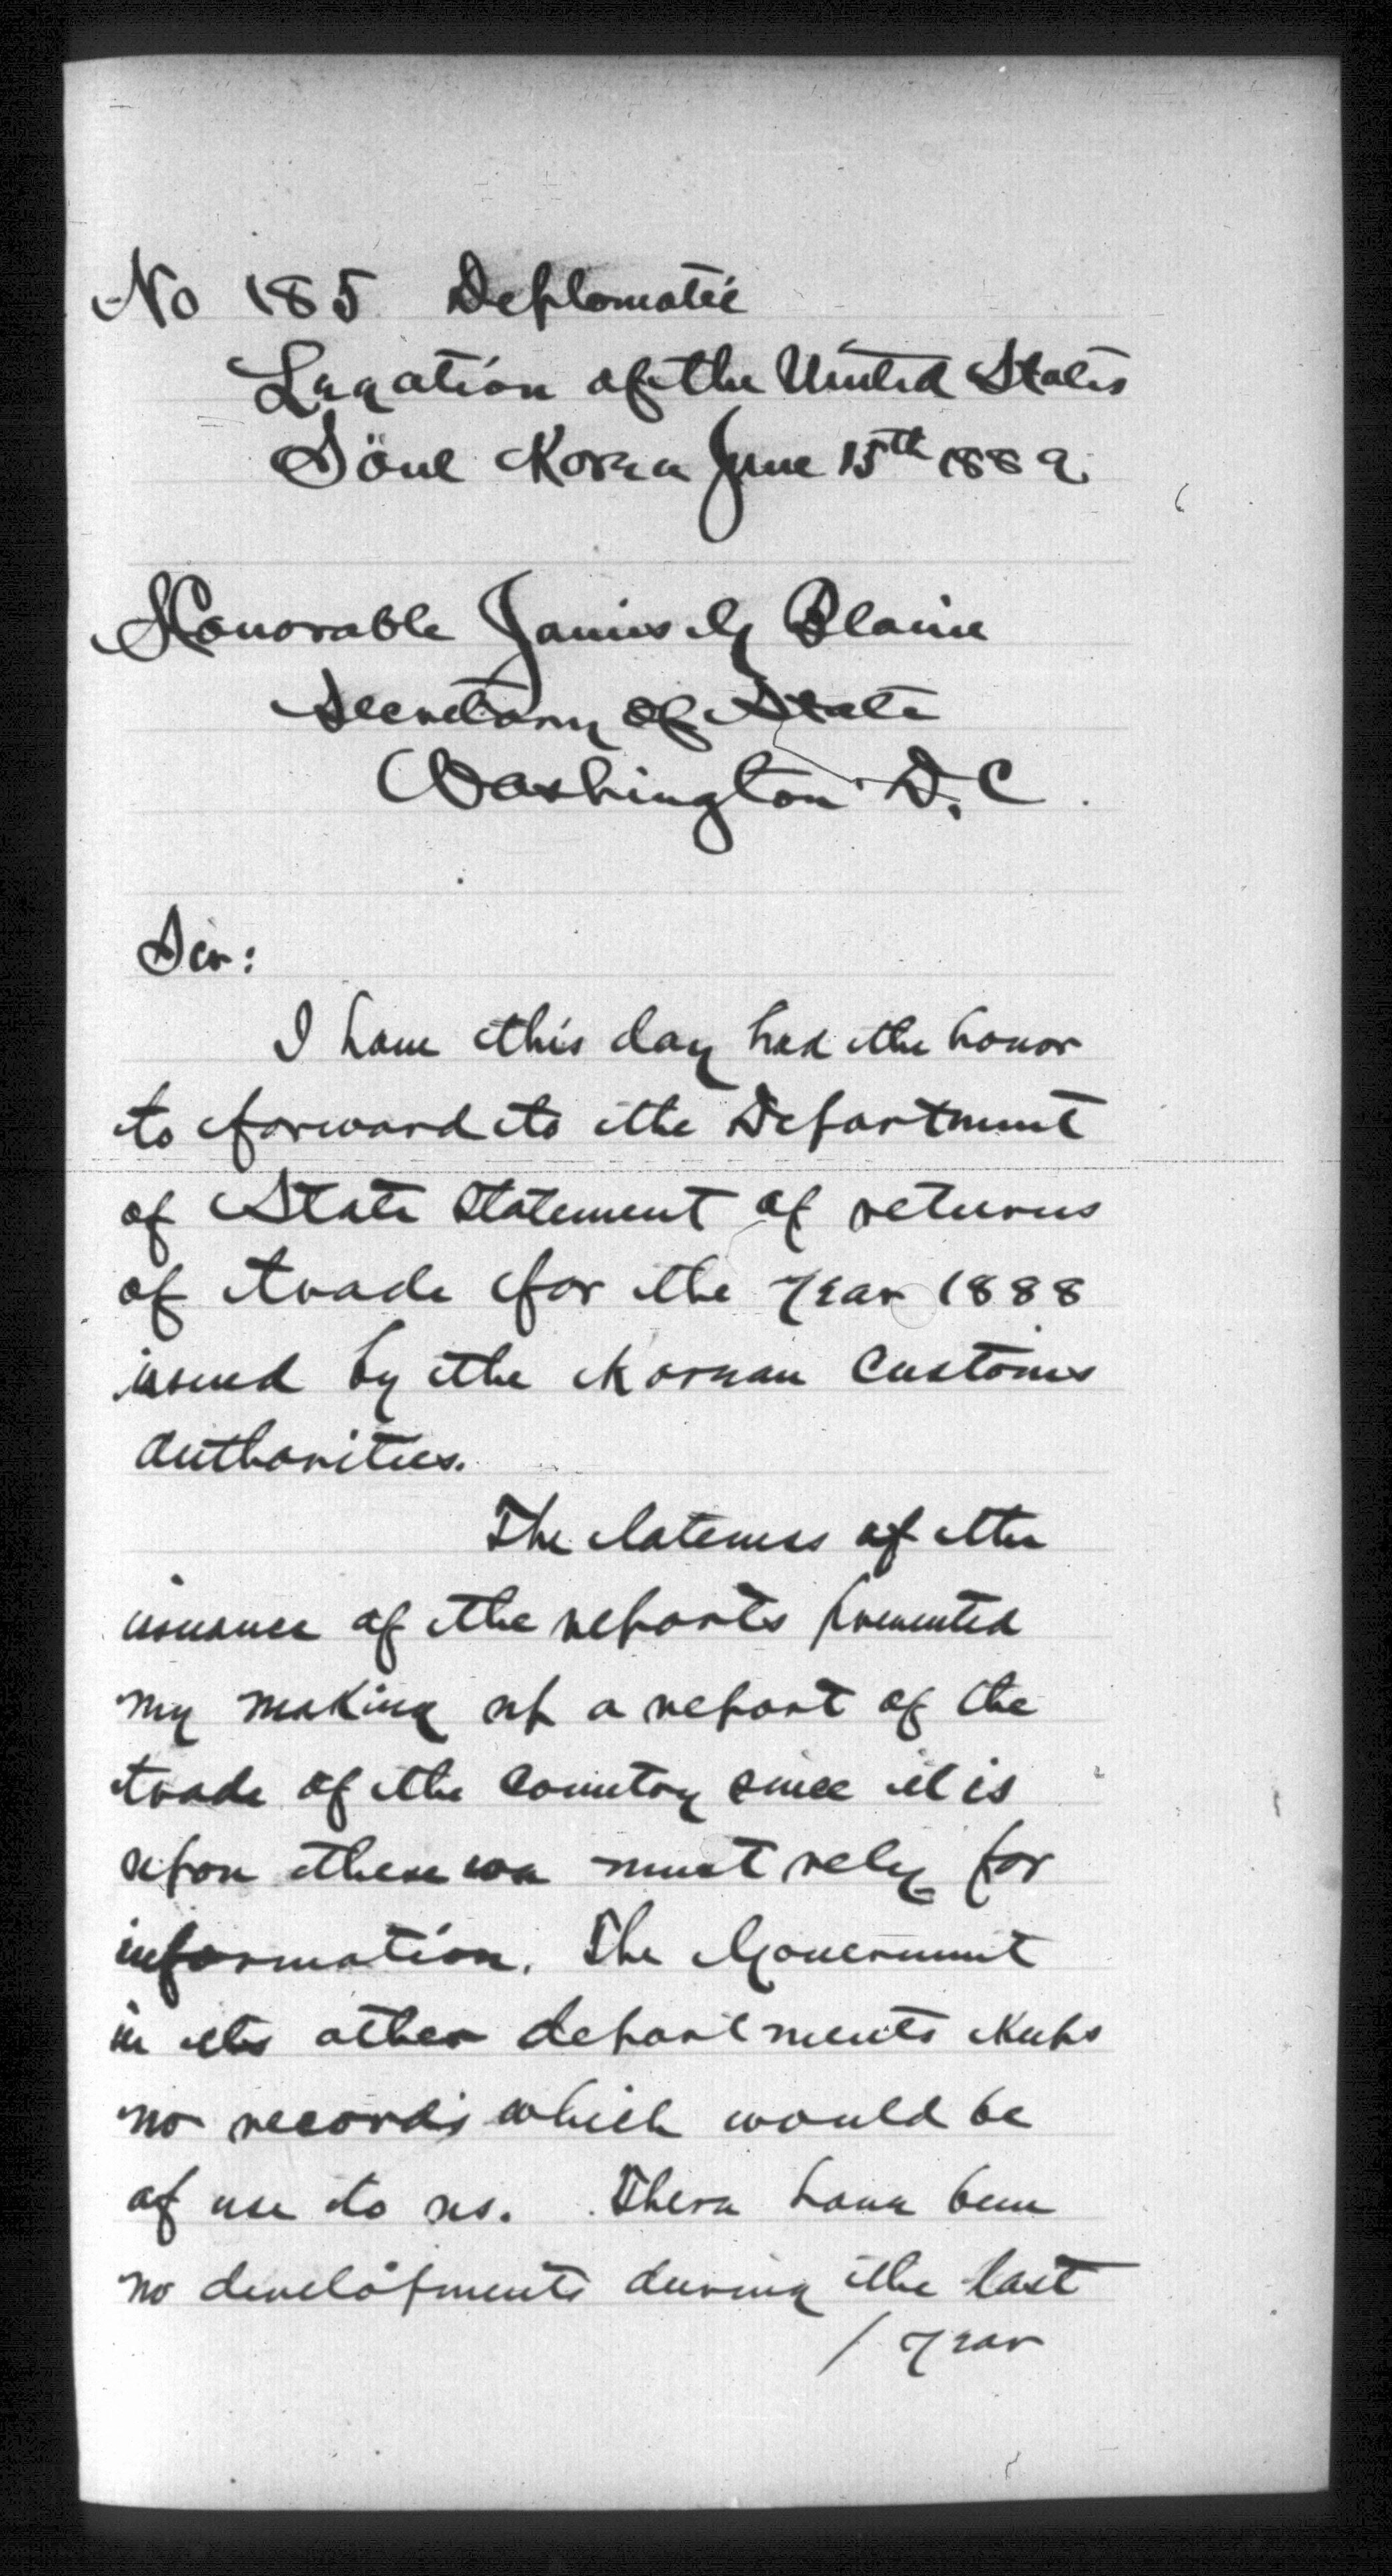 No 185 Diplomatic
Legation of the United States
Söul Korea June 15th 1889.
Honorable James G Blaine
Secretary of State
Washington D.C.
Sir:
I have this day had the honor
to forward to the Department
of State statement of returns
of trade for the year 1888
issued by the Korean Customs
authorities.
The lateness of the
issuance of the reports prevented
my making up a report of the
trade of the Country since it is
upon these we must rely for
information. The Government
in its other departments keeps
no records which would be
of use to us. There have been
no developments during the last
/ year